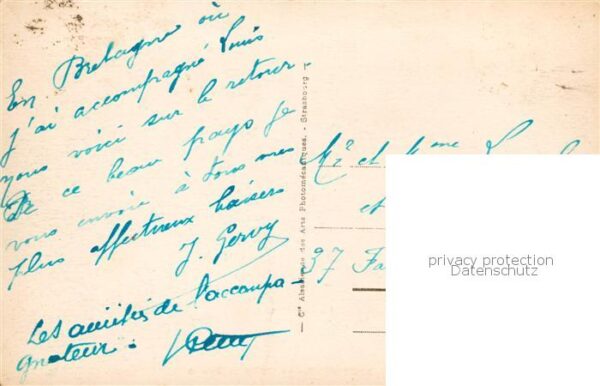 En Bretagne où
j'ai accompagné Louis
voici sur le retour.
De ce beau pays je
vous envoie à tous mes
plus affectueux baisers
J. Gervy
Les amitiés de l'accompa-
gnateur.
Cie Alsacienne des Arts Photomécaniques. - Strasbourg
Mr et Mme
et
37 Fa
privacy protection
Datenschutz